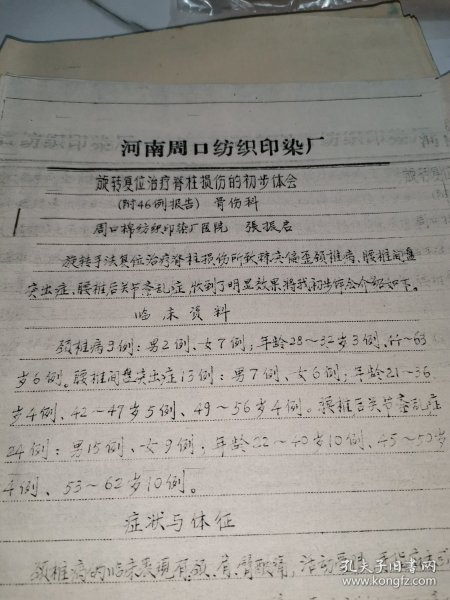 河南周口纺织印染厂
旋转复位治疗脊柱损伤的初步体会
(附46例报告) 骨伤科
周口棉纺织印染厂医院 張振启
旋转手法复位治疗脊柱损伤所致棘突偏歪颈椎病、腰椎间盘
突出症、腰椎后关节紊乱症,收到了明显效果将我初步体会介绍如下。
临床资料
颈椎病9例:男2例、女7例,年龄28～32岁3例、～63
岁6例。腰椎间盘突出症13例:男7例、女6例,年龄21～36
岁4例、42～47岁5例、49～56岁4例。腰椎后关节紊乱症
24例:男15例、女9例,年龄22～40岁10例、45～50岁
4例、53～62岁10例。
症状与体征
颈椎病的临床表现有颈、肩、臂酸痛,活动
孔夫子旧书网
www.kongfz.com